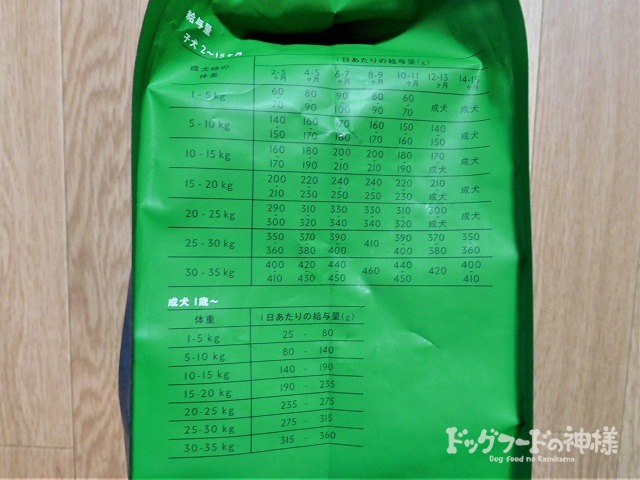 給与量
子犬 2〜15ヶ月
成犬時の体重 1日あたりの給与量(g)
2-3ヶ月 4-5ヶ月 6-7ヶ月 8-9ヶ月 10-11ヶ月 12-13ヶ月 14-15ヶ月
1-5kg 60-70 80-90 90-100 80-90 60-70 成犬 成犬
5-10kg 140-150 160-170 170-180 160-170 150-160 140-150 成犬
10-15kg 160-170 180-190 200-210 200-210 180-190 170-成犬 成犬
15-20kg 200-210 220-230 240-250 240-250 220-230 210-成犬 成犬
20-25kg 290-300 310-320 330-340 330-340 310-320 300-成犬 成犬
25-30kg 350-360 370-380 390-400 410 390-400 370-380 350-360
30-35kg 400-410 420-430 440-450 460 440-450 420 400-410
成犬 1歳〜
体重 1日あたりの給与量(g)
1-5kg 25 - 80
5-10kg 80 - 140
10-15kg 140 - 190
15-20kg 190 - 235
20-25kg 235 - 275
25-30kg 275 - 315
30-35kg 315 - 360
ドッグフードの神様
Dog food no Kamisama